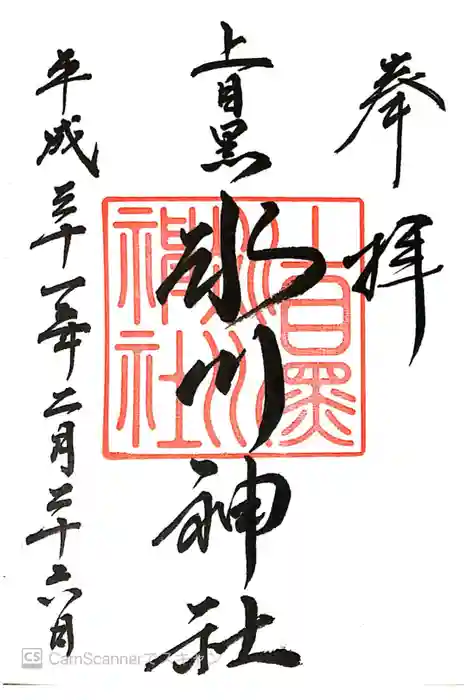 奉拝
上目黒
氷川神社
上目黒氷川神社
平成三十一年二月二十六日
CS CamScannerでスキャン